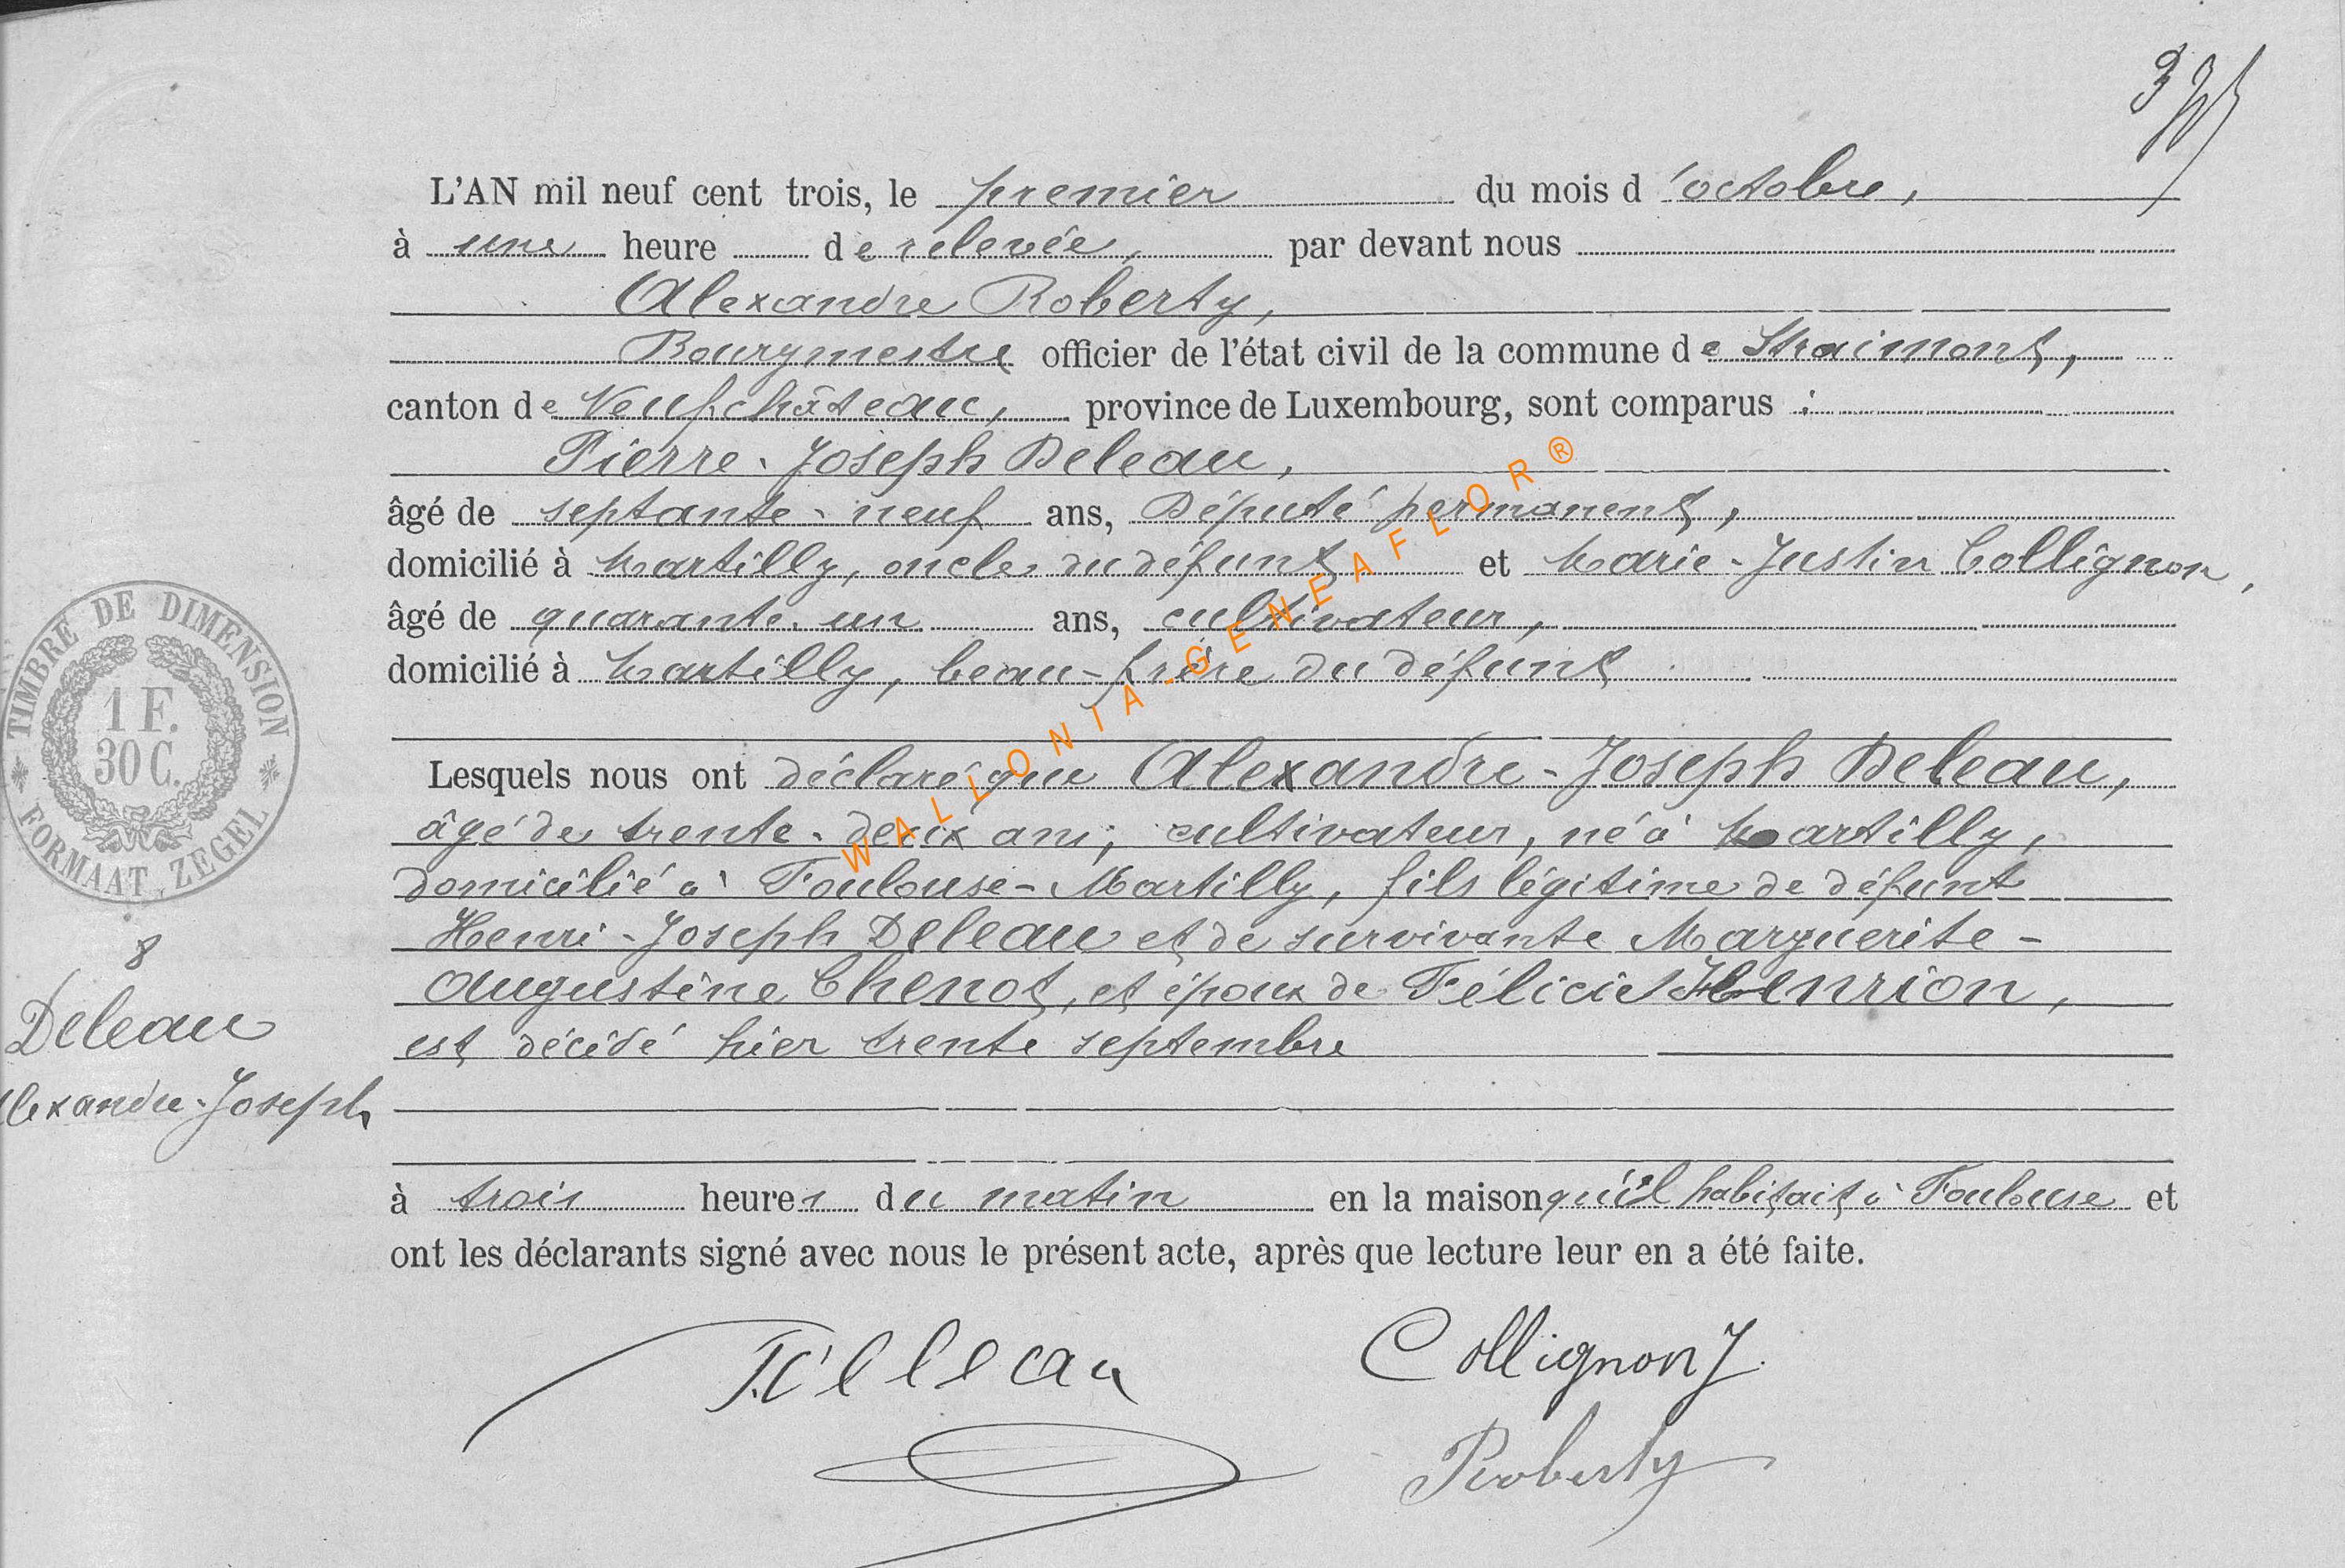 L'AN mil neuf cent trois, le premier du mois d'octobre,
à une heure de relevée, par devant nous
Alexandre Roberty,
Bourgmestre officier de l'état civil de la commune de Straimont,
canton de Neufchâteau, province de Luxembourg, sont comparus :
Pierre-Joseph Deleau,
âgé de septante-neuf ans, Député permanent,
domicilié à Martilly, oncle du défunt et Marie-Justin Collignon,
âgé de quarante-un ans, cultivateur,
domicilié à Martilly, beau-frère du défunt
Lesquels nous ont déclaré que Alexandre-Joseph Deleau,
âgé de trente-deux ans, cultivateur, né à Martilly,
domicilié à Toulouse-Martilly, fils légitime de défunt
Henri-Joseph Deleau et de survivante Marguerite-
Augustine Chenot, et époux de Félicie Henrion,
est décédé hier trente septembre
à trois heures du matin en la maison qu'il habitait à Toulouse et
ont les déclarants signé avec nous le présent acte, après que lecture leur en a été faite.
Deleau
Collignon J.
Roberty
TIMBRE DE DIMENSION
1 F.
30 C.
FORMAAT ZEGEL
8
Deleau
Alexandre-Joseph
WALLONIA-GENEAFLOR®